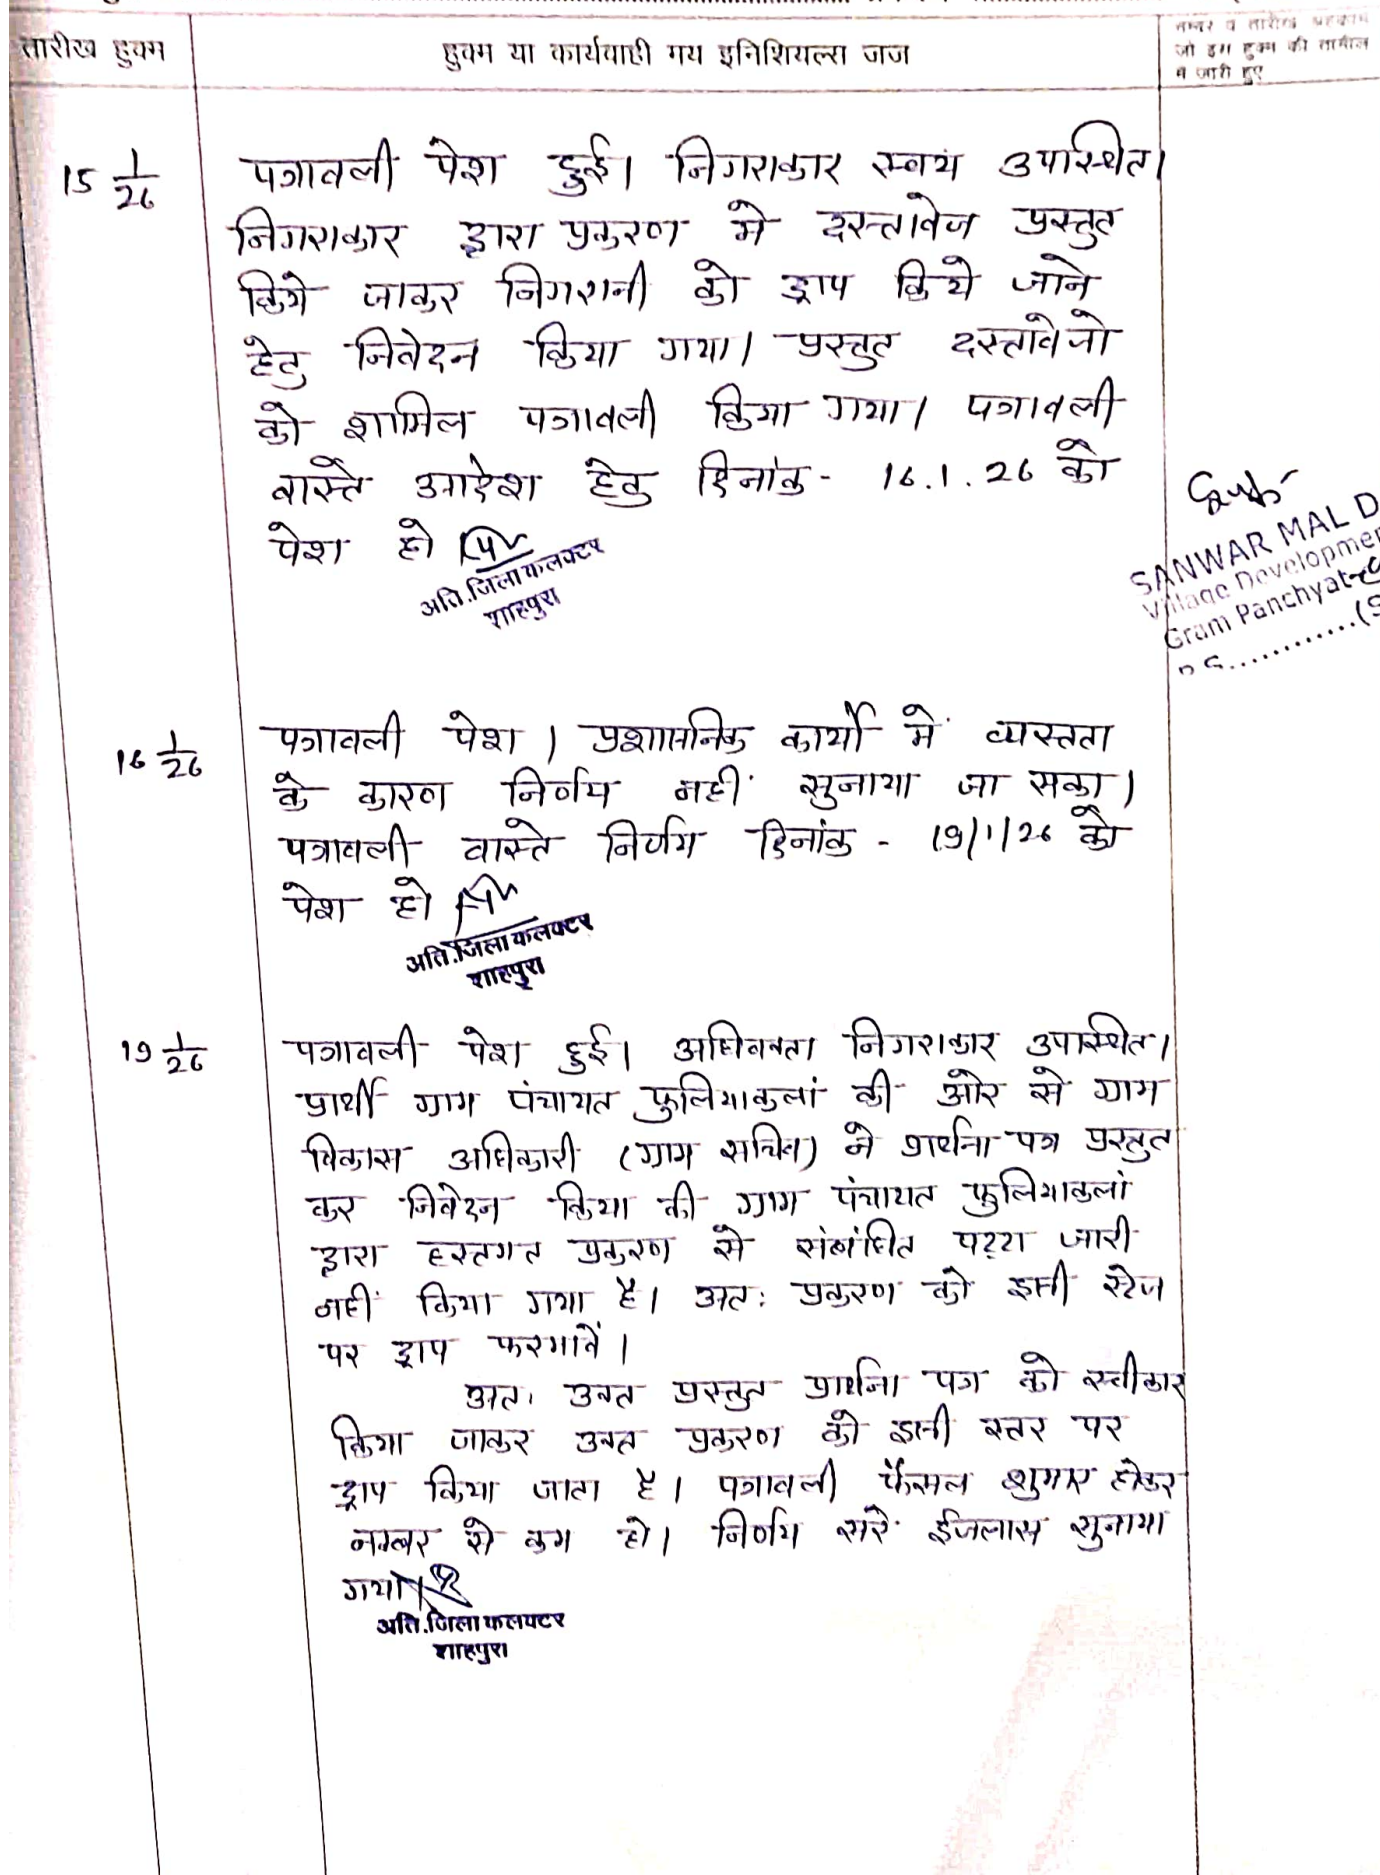 तारीख हुक्म
हुक्म या कार्यवाही मय इनिशियल्स जज
नम्बर व तारीख अहकाम
जो इस हुक्म की तामील
में जारी हुए
15 1/26
पत्रावली पेश हुई। निगराकार स्वयं उपस्थित।
निगराकार द्वारा प्रकरण मे दस्तावेज प्रस्तुत
किये जाकर निगरानी को ड्राप किये जाने
हेतु निवेदन किया गया। प्रस्तुत दस्तावेजो
को शामिल पत्रावली किया गया। पत्रावली
वास्ते आदेश हेतु दिनांक - 16.1.26 को
पेश हो
अति.जिला कलक्टर
शाहपुरा
SANWAR MAL D
Village Developmen
Gram Panchyat
16 1/26
पत्रावली पेश। प्रशासनिक कार्यो में व्यस्तता
के कारण निर्णय नहीं सुनाया जा सका।
पत्रावली वास्ते निर्णय दिनांक - 19/1/26 को
पेश हो
अति.जिला कलक्टर
शाहपुरा
19 1/26
पत्रावली पेश हुई। अधिवक्ता निगराकार उपस्थित।
प्रार्थी ग्राम पंचायत फुलियाकलां की ओर से ग्राम
विकास अधिकारी (ग्राम सचिव) ने प्रार्थना पत्र प्रस्तुत
कर निवेदन किया की ग्राम पंचायत फुलियाकलां
द्वारा हस्तगत प्रकरण से संबंधित पट्टा जारी
नहीं किया गया है। अतः प्रकरण को इसी स्टेज
पर ड्राप फरमावें।
अतः उक्त प्रस्तुत प्रार्थना पत्र को स्वीकार
किया जाकर उक्त प्रकरण को इसी स्तर पर
ड्राप किया जाता है। पत्रावली फैसल शुमार होकर
नम्बर से कम हो। निर्णय सरे ईजलास सुनाया
गया।
अति.जिला कलक्टर
शाहपुरा